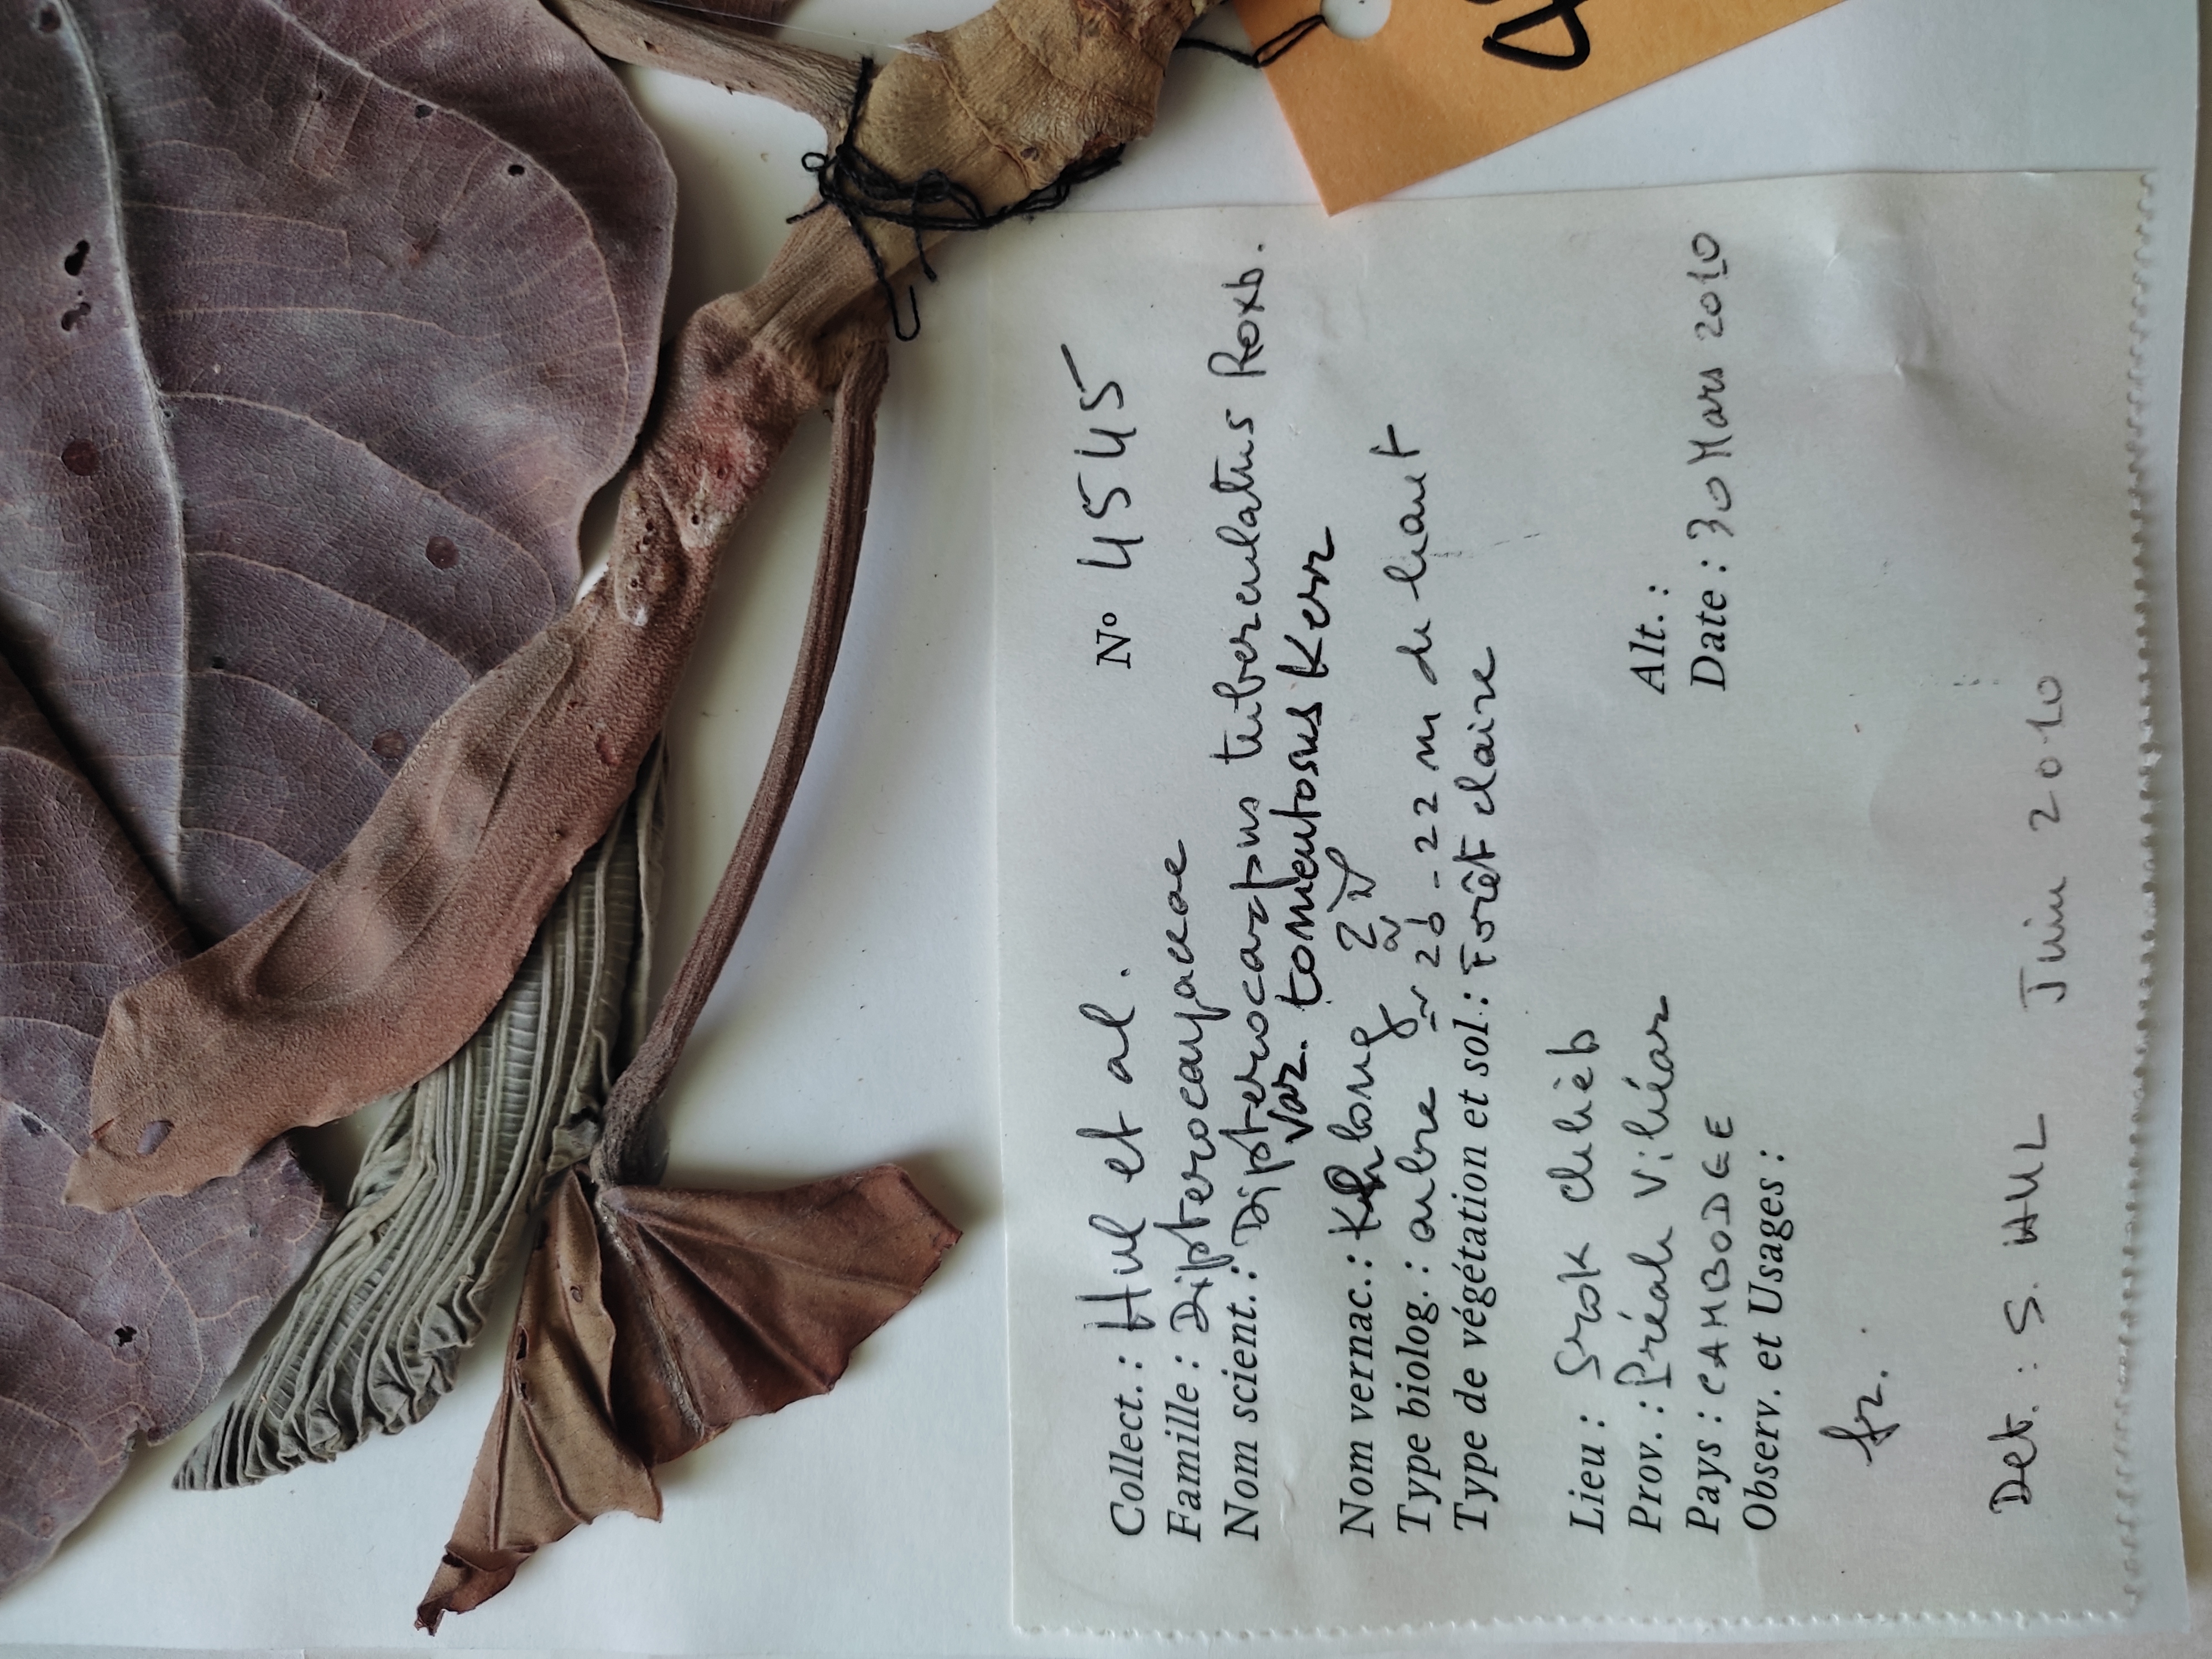 Collect. : Hul et al. N° 4545
Famille : Dipterocarpaceae
Nom scient. : Dipterocarpus tuberculatus Roxb.
var. tomentosus Kerr
Nom vernac. : Khlong
Type biolog. : arbre 20-22 m de haut
Type de végétation et sol : Forêt claire
Lieu : Srok chhèb
Prov. : Préah Vihéar Alt. :
Pays : CAMBODGE Date : 30 Mars 2010
Observ. et Usages :
fr.
Det. : S. HUL Juin 2010